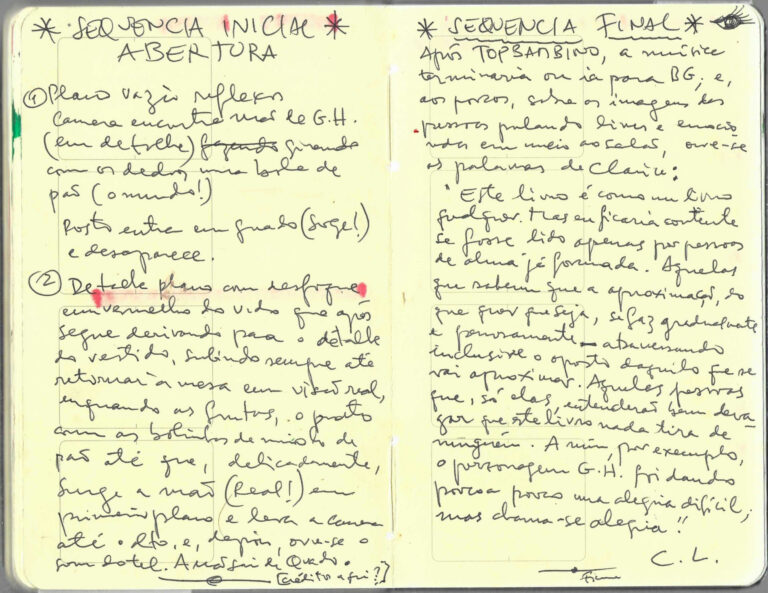 * SEQUENCIA INICIAL *
ABERTURA
① Plano vazio reflexos
camera encontra mão de G.H.
(em detalhe) fazendo girando
com os dedos uma bola de
pão (o mundo!)
Rosto entra em quadro (Surge!)
e desaparece.
② Detalhe plano com desfoque
em vermelho do vidro que após
segue derivando para o detalhe
do vestido, subindo sempre até
retornar à mesa em visão real,
enquando as frutas, o prato
com as bolinhas de miolo de
pão até que, delicadamente,
Surge a mão (Real!) em
primeiro plano e leva a camera
até o e, depois, ouve-se o
som do tel.
[crédito aqui?]
* SEQUENCIA FINAL *
Após TOPBAMBINO, a música
terminaria ou ia para BG; e,
aos poucos, sobre as imagens das
pessoas pulando livres e emocio
nadas em meio ao salão, ouve-se
as palavras de Clarice:
"Este livro é como um livro
qualquer. Mas eu ficaria contente
se fosse lido apenas por pessoas
de alma já formada. Aquelas
que sabem que a aproximação, do
que quer que seja, se faz gradualmente
e penosamente – atravessando
inclusive o oposto daquilo que se
vai aproximar. Aquelas pessoas
que, só elas, entenderão bem deva
gar que este livro nada tira de
ninguém. A mim, por exemplo,
o personagem G.H. foi dando
pouco a pouco uma alegria difícil;
mas chama-se alegria".
C. L.